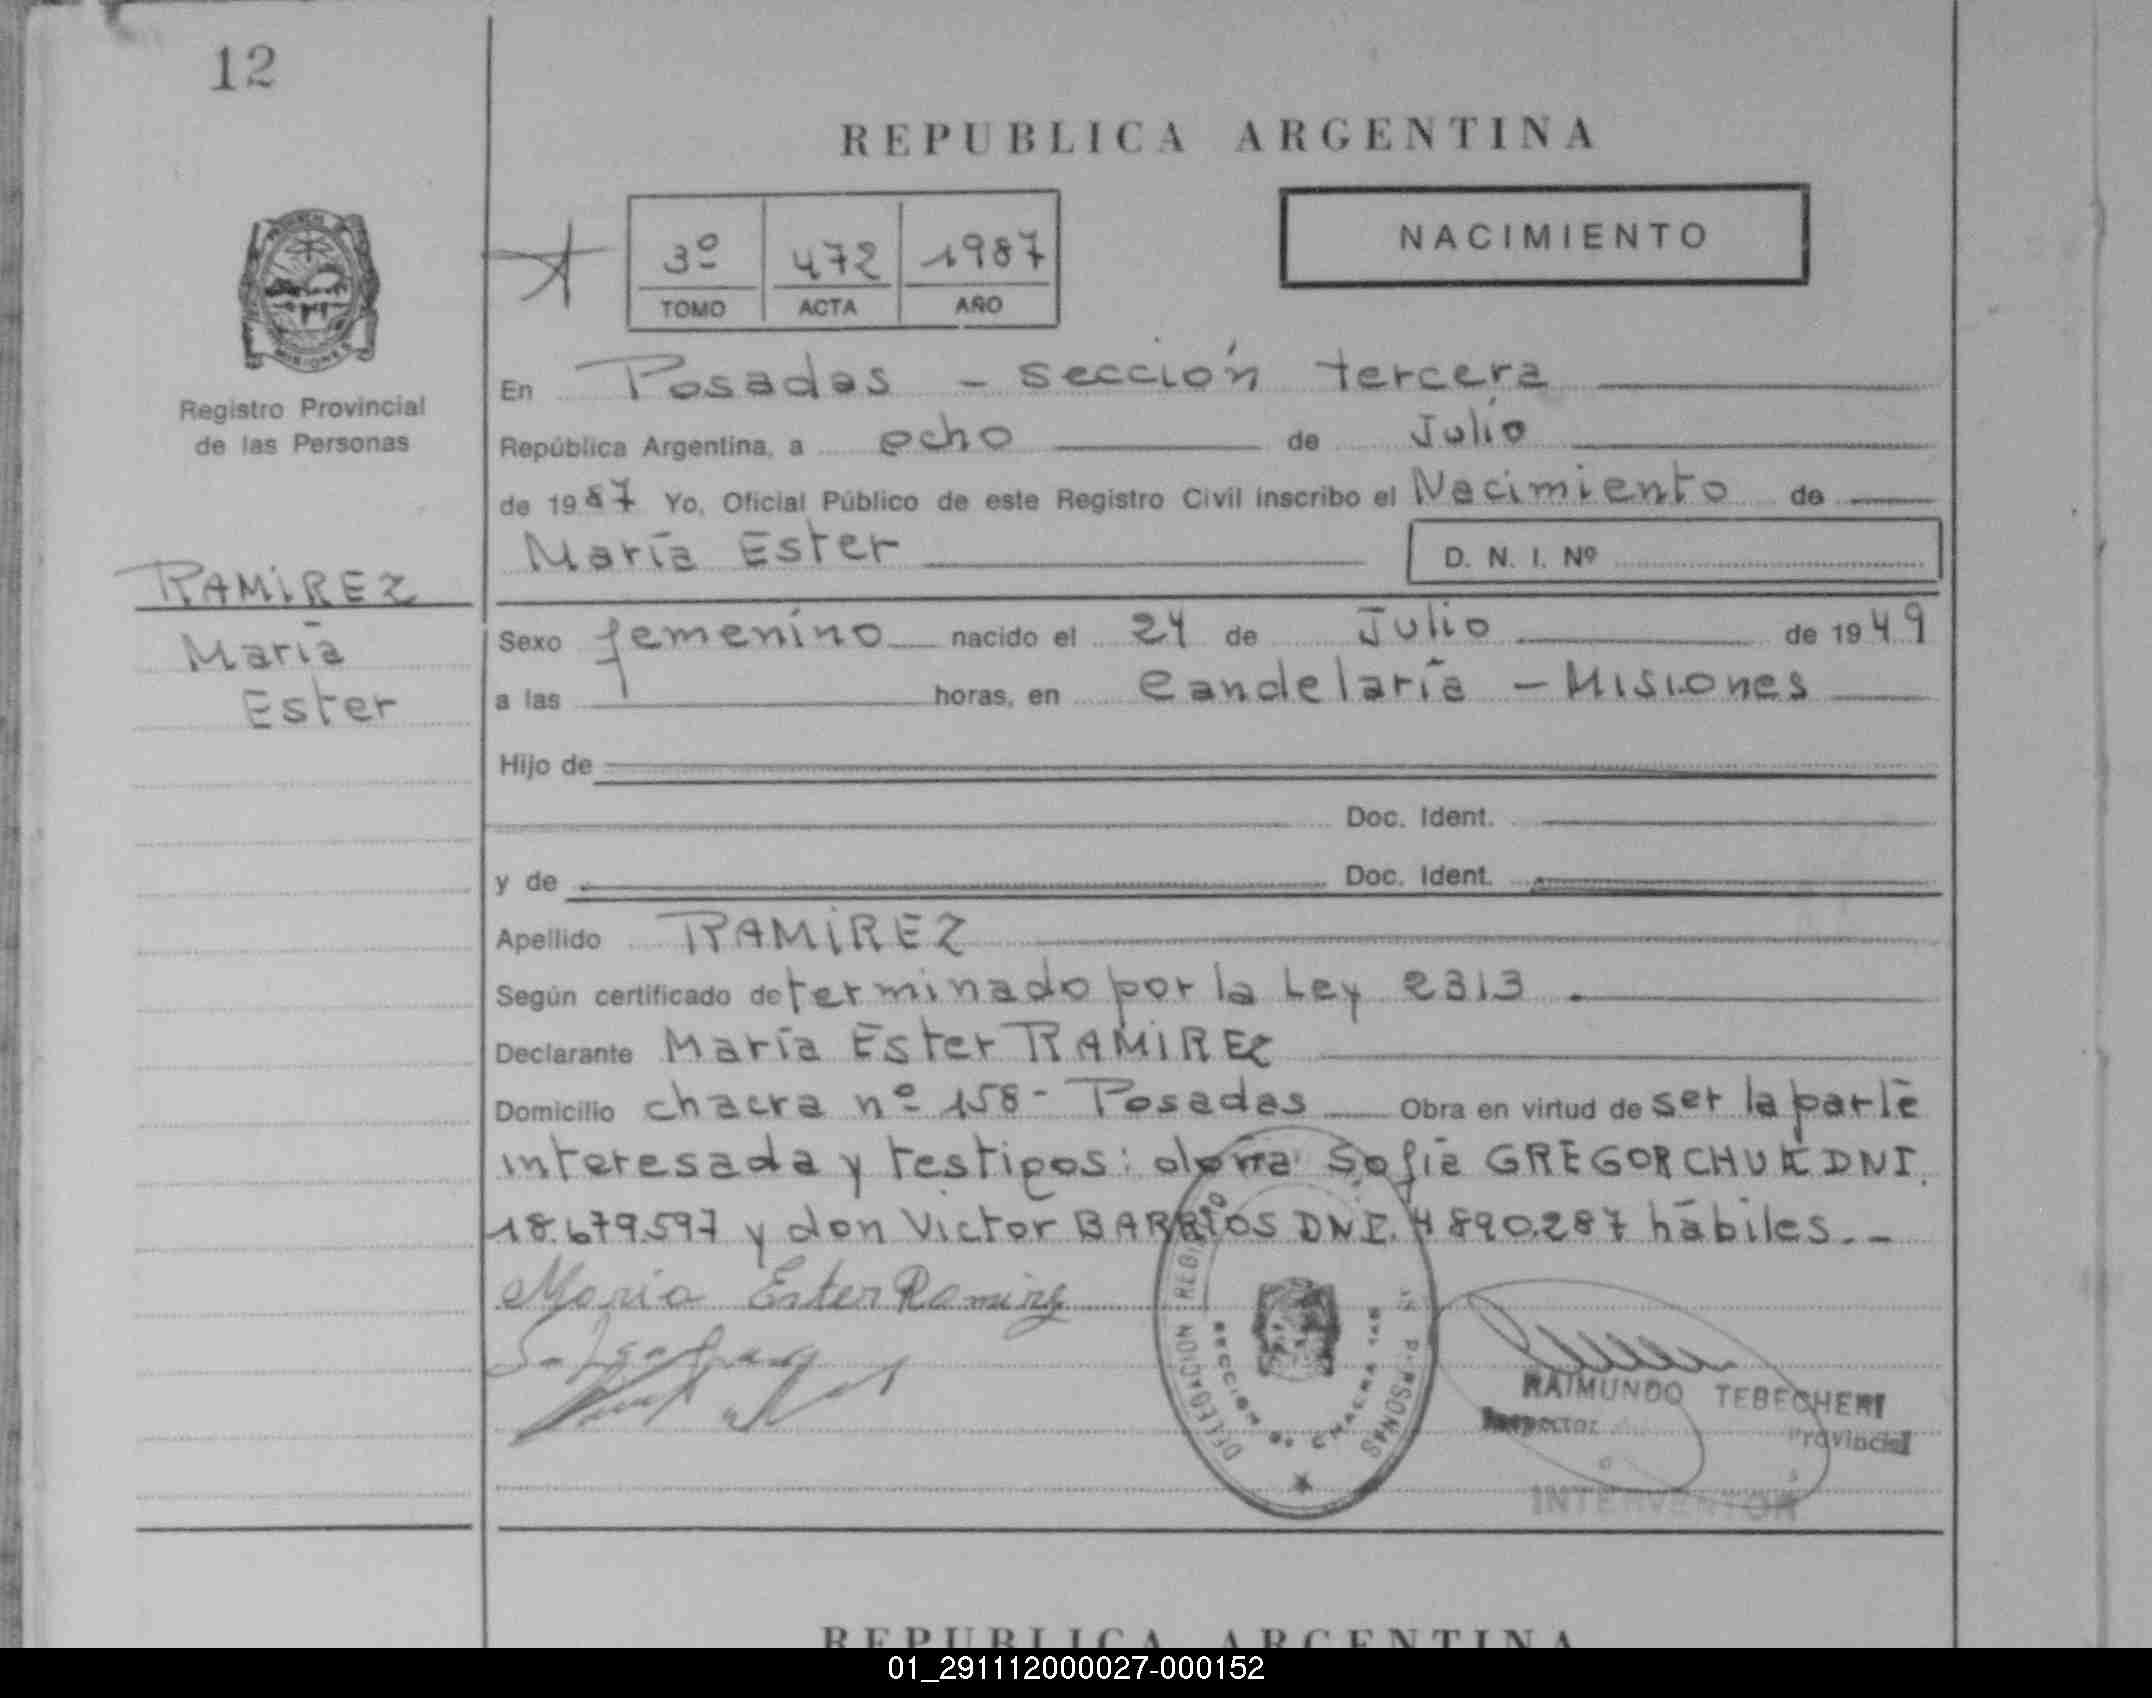 12
REPUBLICA ARGENTINA
3º 472 1987
TOMO ACTA AÑO
NACIMIENTO
Registro Provincial
de las Personas
En Posadas - sección tercera
República Argentina, a ocho de Julio
de 1987 Yo, Oficial Público de este Registro Civil inscribo el Nacimiento de
María Ester D. N. I. Nº
RAMIREZ
María
Ester
Sexo femenino nacido el 24 de Julio de 1949
a las horas, en Candelaria - Misiones
Hijo de
Doc. Ident.
y de Doc. Ident.
Apellido RAMIREZ
Según certificado determinado por la Ley 2313.
Declarante María Ester RAMIREZ
Domicilio chacra nº 158 - Posadas Obra en virtud de ser la parte
interesada y testigos: doña Sofía GREGORCHUK DNI.
18.679.597 y don Victor BARRIOS DNI. 4890.287 hábiles.-
María Ester Ramirez
DELEGACION
SECCION CHACRA
PERSONAS
RAIMUNDO TEBECHERI
Inspector Provincial
INTERVENTOR
REPUBLICA ARGENTINA
01_291112000027-000152